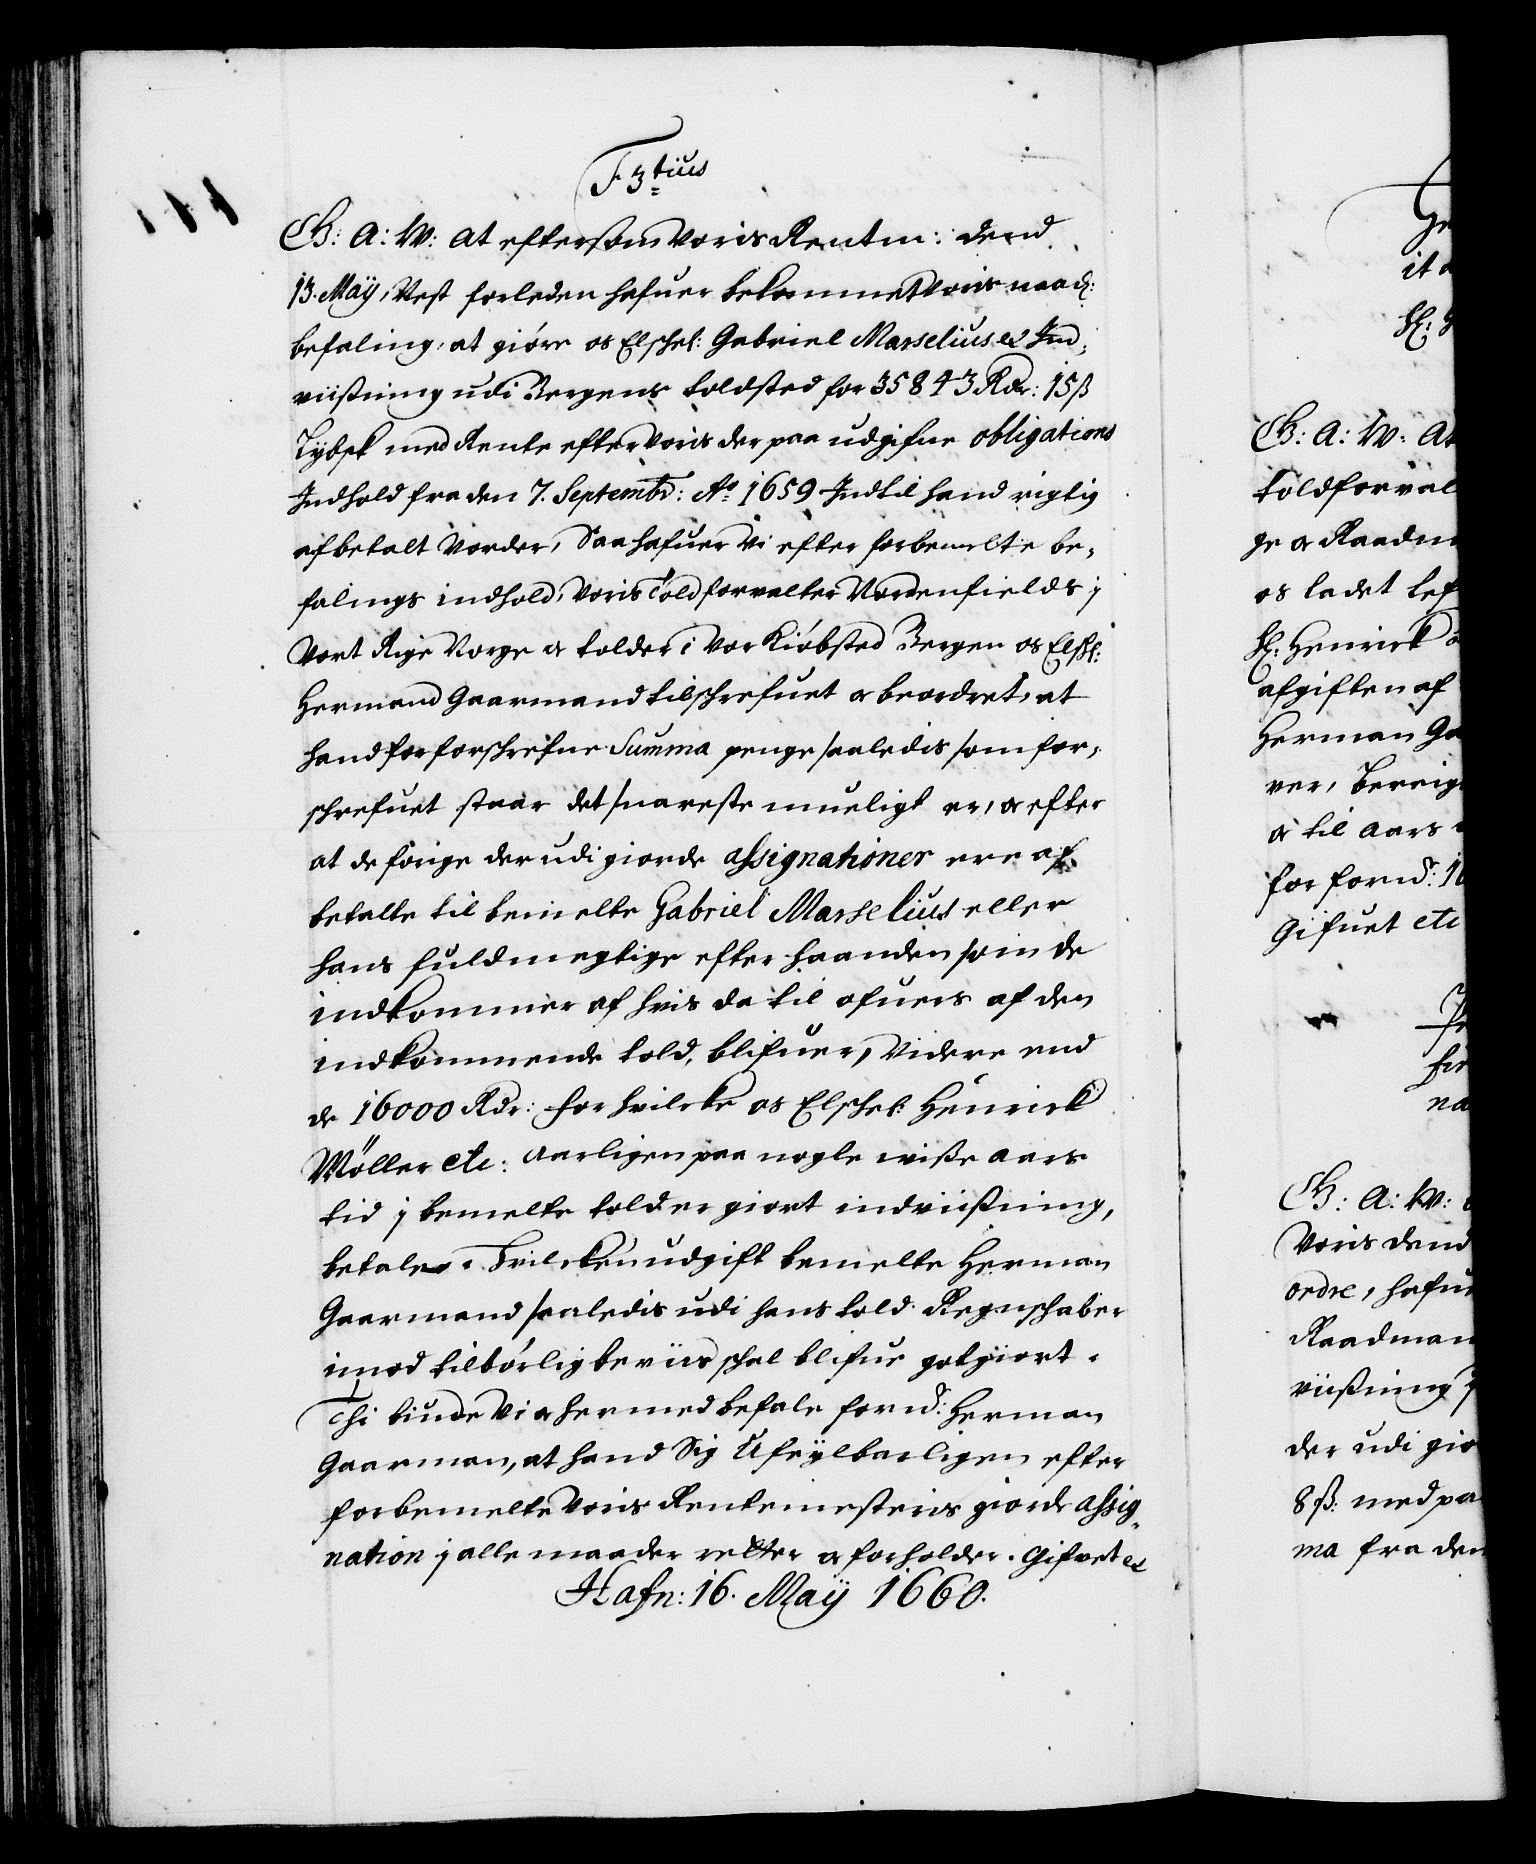 F 3tius
G: A: W: At eftersom Voris Rentm: dend
13. Maÿ, Nest forleden hafuer bekommet Voris naad:
befaling, at giöre os Elschel: Gabriel Marselius etc Ind,
viisning udi Bergens toldsted for 35843 Rdr: 15 ß
Lybsk med Rente efter Voris der paa udgifne obligations
Indhold fra den 7. Septembr: Ao 1659 Indtil hand rigtig
afbetalt Vorder, Saa hafuer Vi efter forbemelte be,
falings indhold, Voris Toldforvalter Nordenfields j
Vort Rige Norge oc tolder i Vor Kiöbsted Bergen os Elsch:
Hermand Gaarmand tilschrefuet oc beordret, at
hand for forschrefne Summa penge saaledis som for,
schrefuet staar det snareste mueligt er, oc efter
at de förige der udi giorde assignationer ere af
betalte til bemelte Gabriel Marselius eller
hans fuldmegtige efter haanden som de
indkommer af hvis da til ofuers af den
indkommende told, blifuer, Videre end
de 16000 Rdr: for hvilcke os Elschel: Henrick
Möller etc: aarligen paa nogle visse aars
tid j bemelte told er giort indviisning,
betaler. Hvilcken udgift bemelte Herman
Gaarmand saaledis udi hans told Regnschaber
imod tilbörlig beviis schal blifue got giort.
Thi biude Vi oc hermed befale fornd: Herman
Gaarman, at hand Sig Ufeÿlbarligen efter
forbemelte Voris Rentemesteris giorde assig,
nation j alle maader retter oc forholder. Gifvet etc
Hafn: 16. Maÿ 1660.
G: A: W: At
toldforval
ge oc Raadm
os ladet
Sl: Henrick
afgiften af
Herman Ga
ver,
oc til aars
for fornd: 16
Gifuet etc
na
G: A: W:
Voris dend
ordre, hafu
Raadman
viisning j
der udi gio
8 ß: med pa
ma fra den